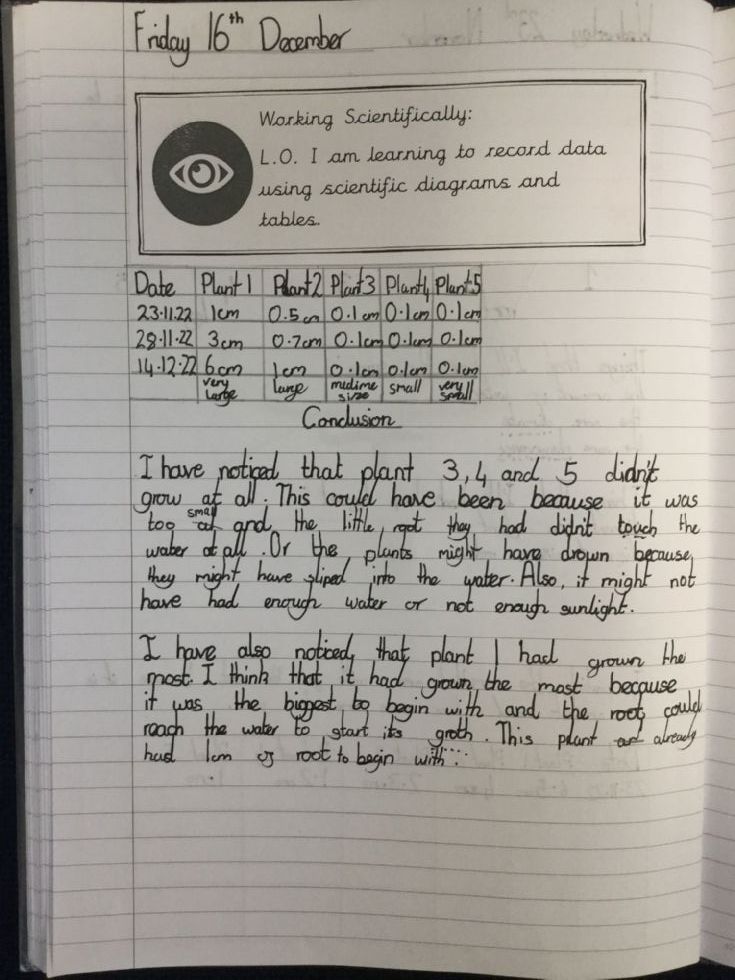 Friday 16th December
Working Scientifically:
L.O. I am learning to record data
using scientific diagrams and
tables.
Date Plant 1 Plant 2 Plant 3 Plant 4 Plant 5
23.11.22 1cm 0.5cm 0.1cm 0.1cm 0.1cm
28.11.22 3cm 0.7cm 0.1cm 0.1cm 0.1cm
14.12.22 6cm 1cm 0.1cm 0.1cm 0.1cm
very large large medime size small very small
Conclusion
I have noticed that plant 3,4 and 5 didn't
grow at all. This could have been because it was
too small and the little root they had didn't touch the
water at all. Or the plants might have drown because
they might have sliped into the water. Also, it might not
have had enough water or not enough sunlight.
I have also noticed that plant 1 had grown the
most. I think that it had grown the most because
it was the biggest to begin with and the root could
reach the water to start its groth. This plant already
had 1cm of root to begin with